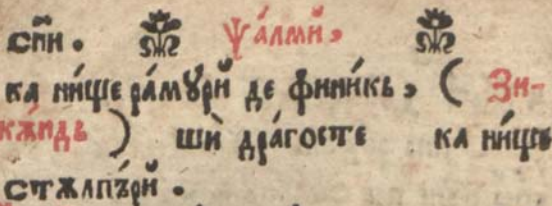 спи́й . ѱа́лмй,
ка ни́ще ра́мꙋрй де фини́кь, ( Зи-
кѫ́ндь ) шѝ дра́госте ка ни́ще
стѫлпъ́рй .